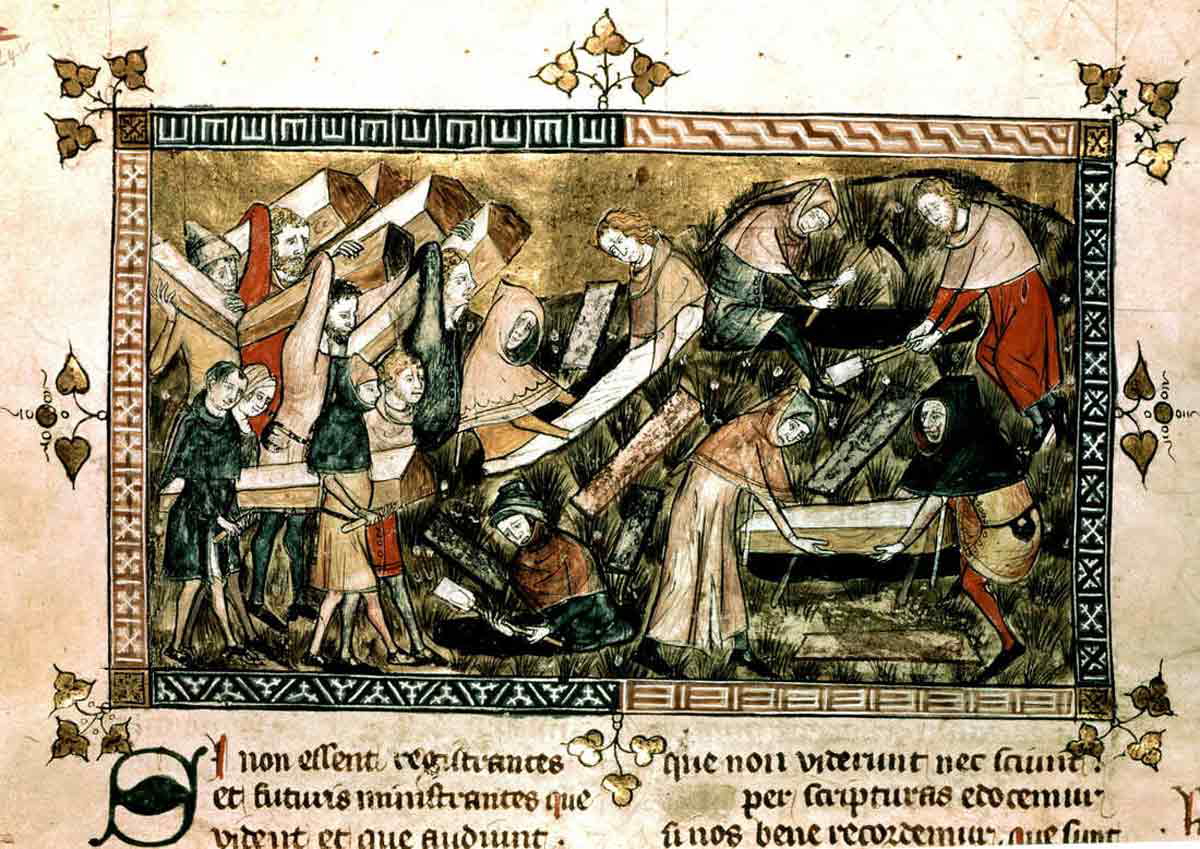 SI non essent registrantes
et futuris ministrantes que
vident et que audiunt.
que non viderunt nec sciunt:
per scripturas edocemur
si nos bene recordemur, que sunt